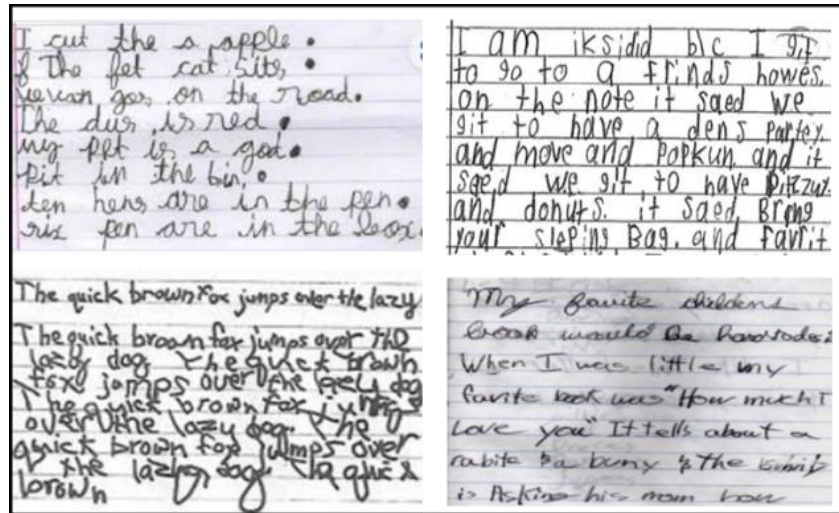 I cut the a apple.
The fet cat sits
on the road.
The dus is red.
my ppt is a god.
Pit in the bin.
ten hens are in the pen.
six pen are in the box.
I am iksidid b/c I git
to go to a frinds howes.
on the note it saed we
git to have a dens partey.
and move and Popkun and it
saed we git to have Pitzzux
and donuts. it saed Bring
your sleping Bag. and favrit
The quick brown fox jumps over the lazy
The quick broown fox jumps over the
lazy dog. The quick brown
fox jomps over the lazy dog
The quick brown fox
over the lazy dog. The
quick brown fox jumps over
the lazy dog. quick
brown
My favite childens
book would be
When I was little my
favite book was "How much I
Love you" It tells about a
rabite & a buny & the
is Asking his mom how